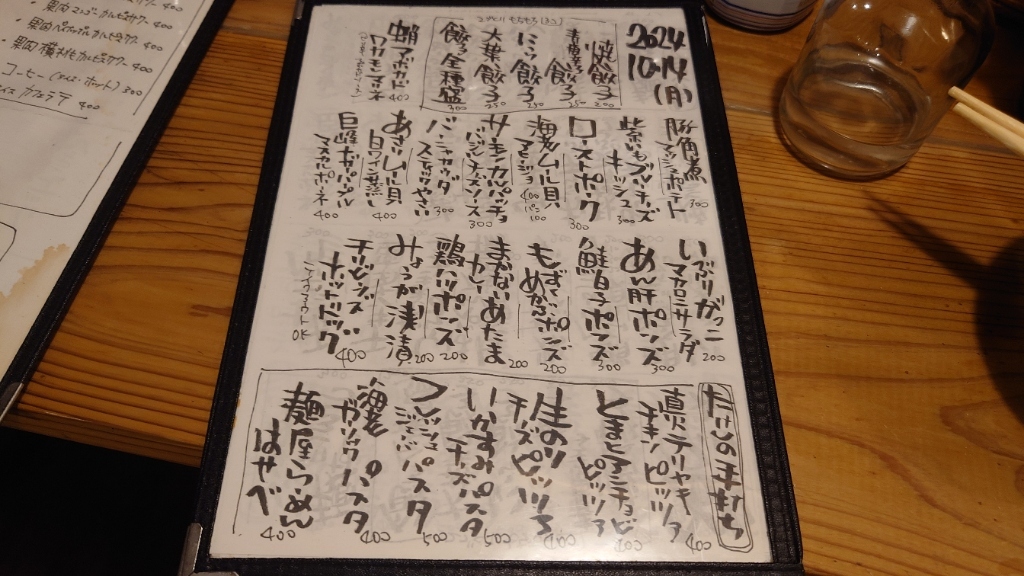 2024
10.14
(月)
焼餃子
200
青唐辛子
餃子
250
にら餃子
250
大葉餃子
250
餃子全種盛
300
蝦アボカド
ワサビマヨネ
400
豚角煮
マッシュポテト
300
紫いもブルーチーズ
キッシュ
300
ローストポーク
300
海老ムール貝
アヒージョ
400
パン100
サーモンカルパッチョ
バジルチーズソース
300
バーニャカウダ
スティックやさい
300
あさりムール貝
白ワイン蒸し
400
マスカルポーネ
400
いぶりがっこ
マカロニサラダ
200
あん肝ポンズ
300
鮭白子ポンズ
300
もずく
めかぶポンズ
200
まかないあたま
200
鶏ハツポンズ
200
みょうが浅漬
200
チリビーンズ
ホットドック
400
OK
たけしの手打ち
真イカテリヤキ
チキンピッツァ
400
とまとアンチョビ
ピッツァ
400
生のり
チーズピッツァ
500
いかすみパスタ
チーズ
500
フレッシュ
ジェノバパスタ
500
海老
ガーリックパスタ
400
麺屋らーめん
はやべ
400
コーヒー (アイス・ホット) 300
アイスカフェラテ
400